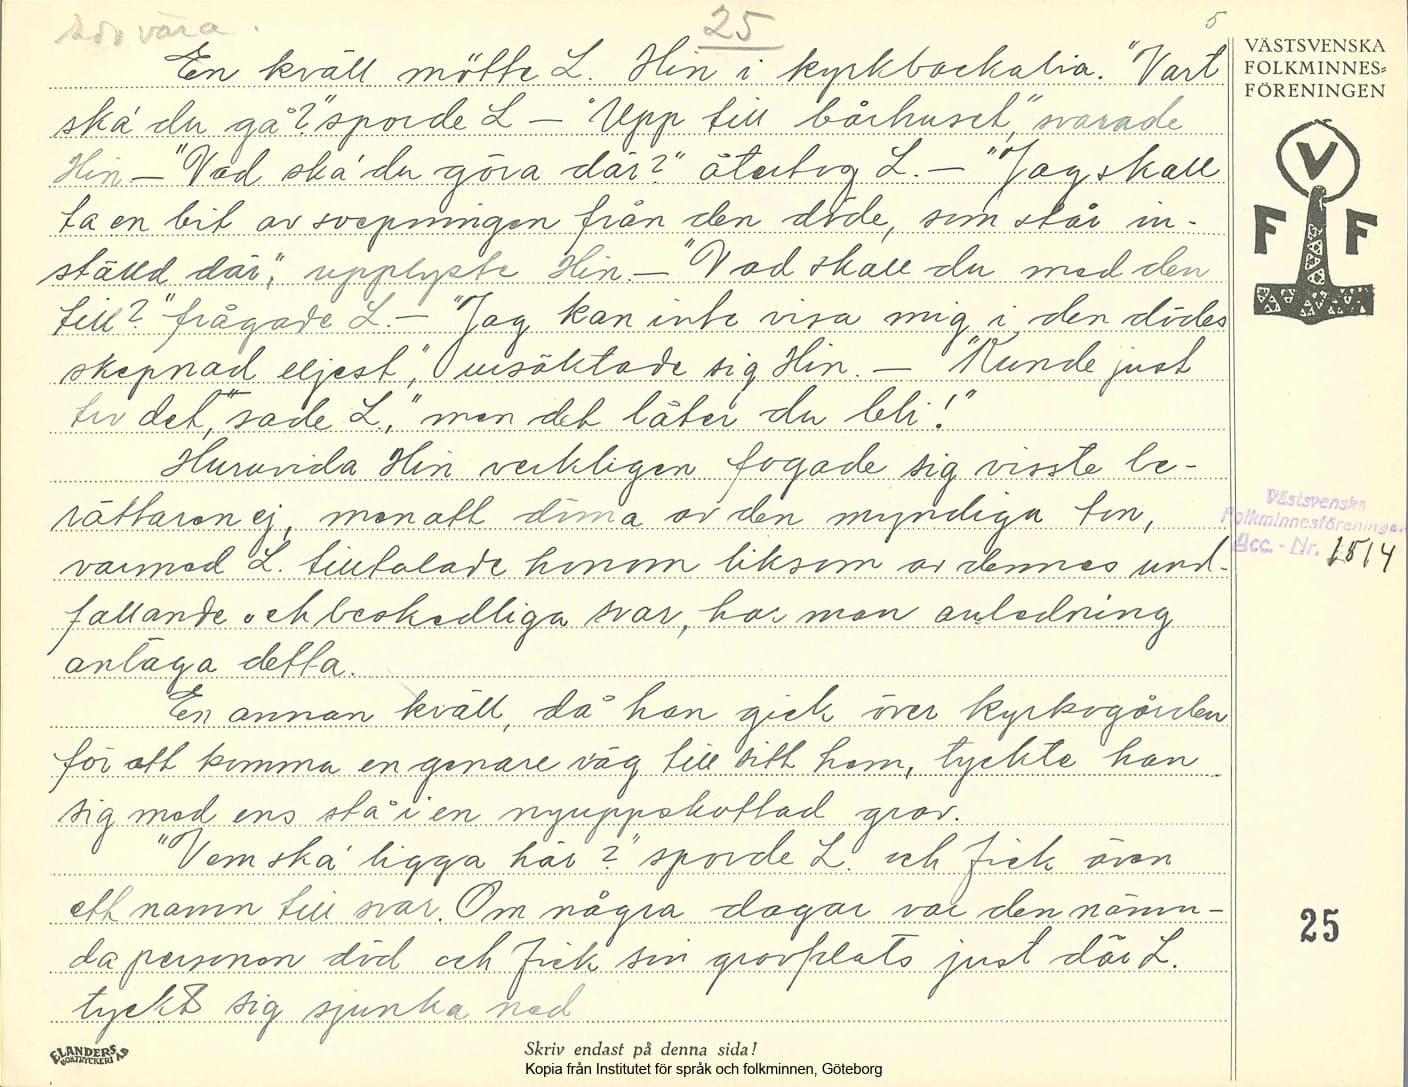 25
5
En kväll mötte L. Hin i kyrkbackalia. "Vart
ska' du gå?" sporde L — "Upp till bårhuset", svarade
Hin — "Vad ska' du göra där?" återtog L. — "Jag skall
ta en bit av svepningen från den döde, som står in-
ställd där", upplyste Hin. — "Vad skall du med den
till?" frågade L. — "Jag kan inte visa mig i den dödes
skepnad eljest", ursäktade sig Hin. — "Kunde just
tro det," sade L, "men det låter du bli!"
Huruvida Hin verkligen fogade sig visste be-
rättaren ej, men att döma av den myndiga ton,
varmed L. tilltalade honom liksom av dennes und-
fallande och beskedliga svar, har man anledning
antaga detta.
En annan kväll, då han gick över kyrkogården
för att komma en genare väg till sitt hem, tyckte han
sig med ens stå i en nyuppskottad grav.
"Vem ska' ligga här?" sporde L. och fick även
ett namn till svar. Om några dagar var den nämn-
da personen död och fick sin gravplats just där L.
tyckt sig sjunka ned
VÄSTSVENSKA
FOLKMINNES=
FÖRENINGEN
V
F F
Västsvenska
Folkminnesföreningen
Acc. - Nr. 1514
25
ELANDERS
BOKTRYCKERI AB
Skriv endast på denna sida!
Kopia från Institutet för språk och folkminnen, Göteborg